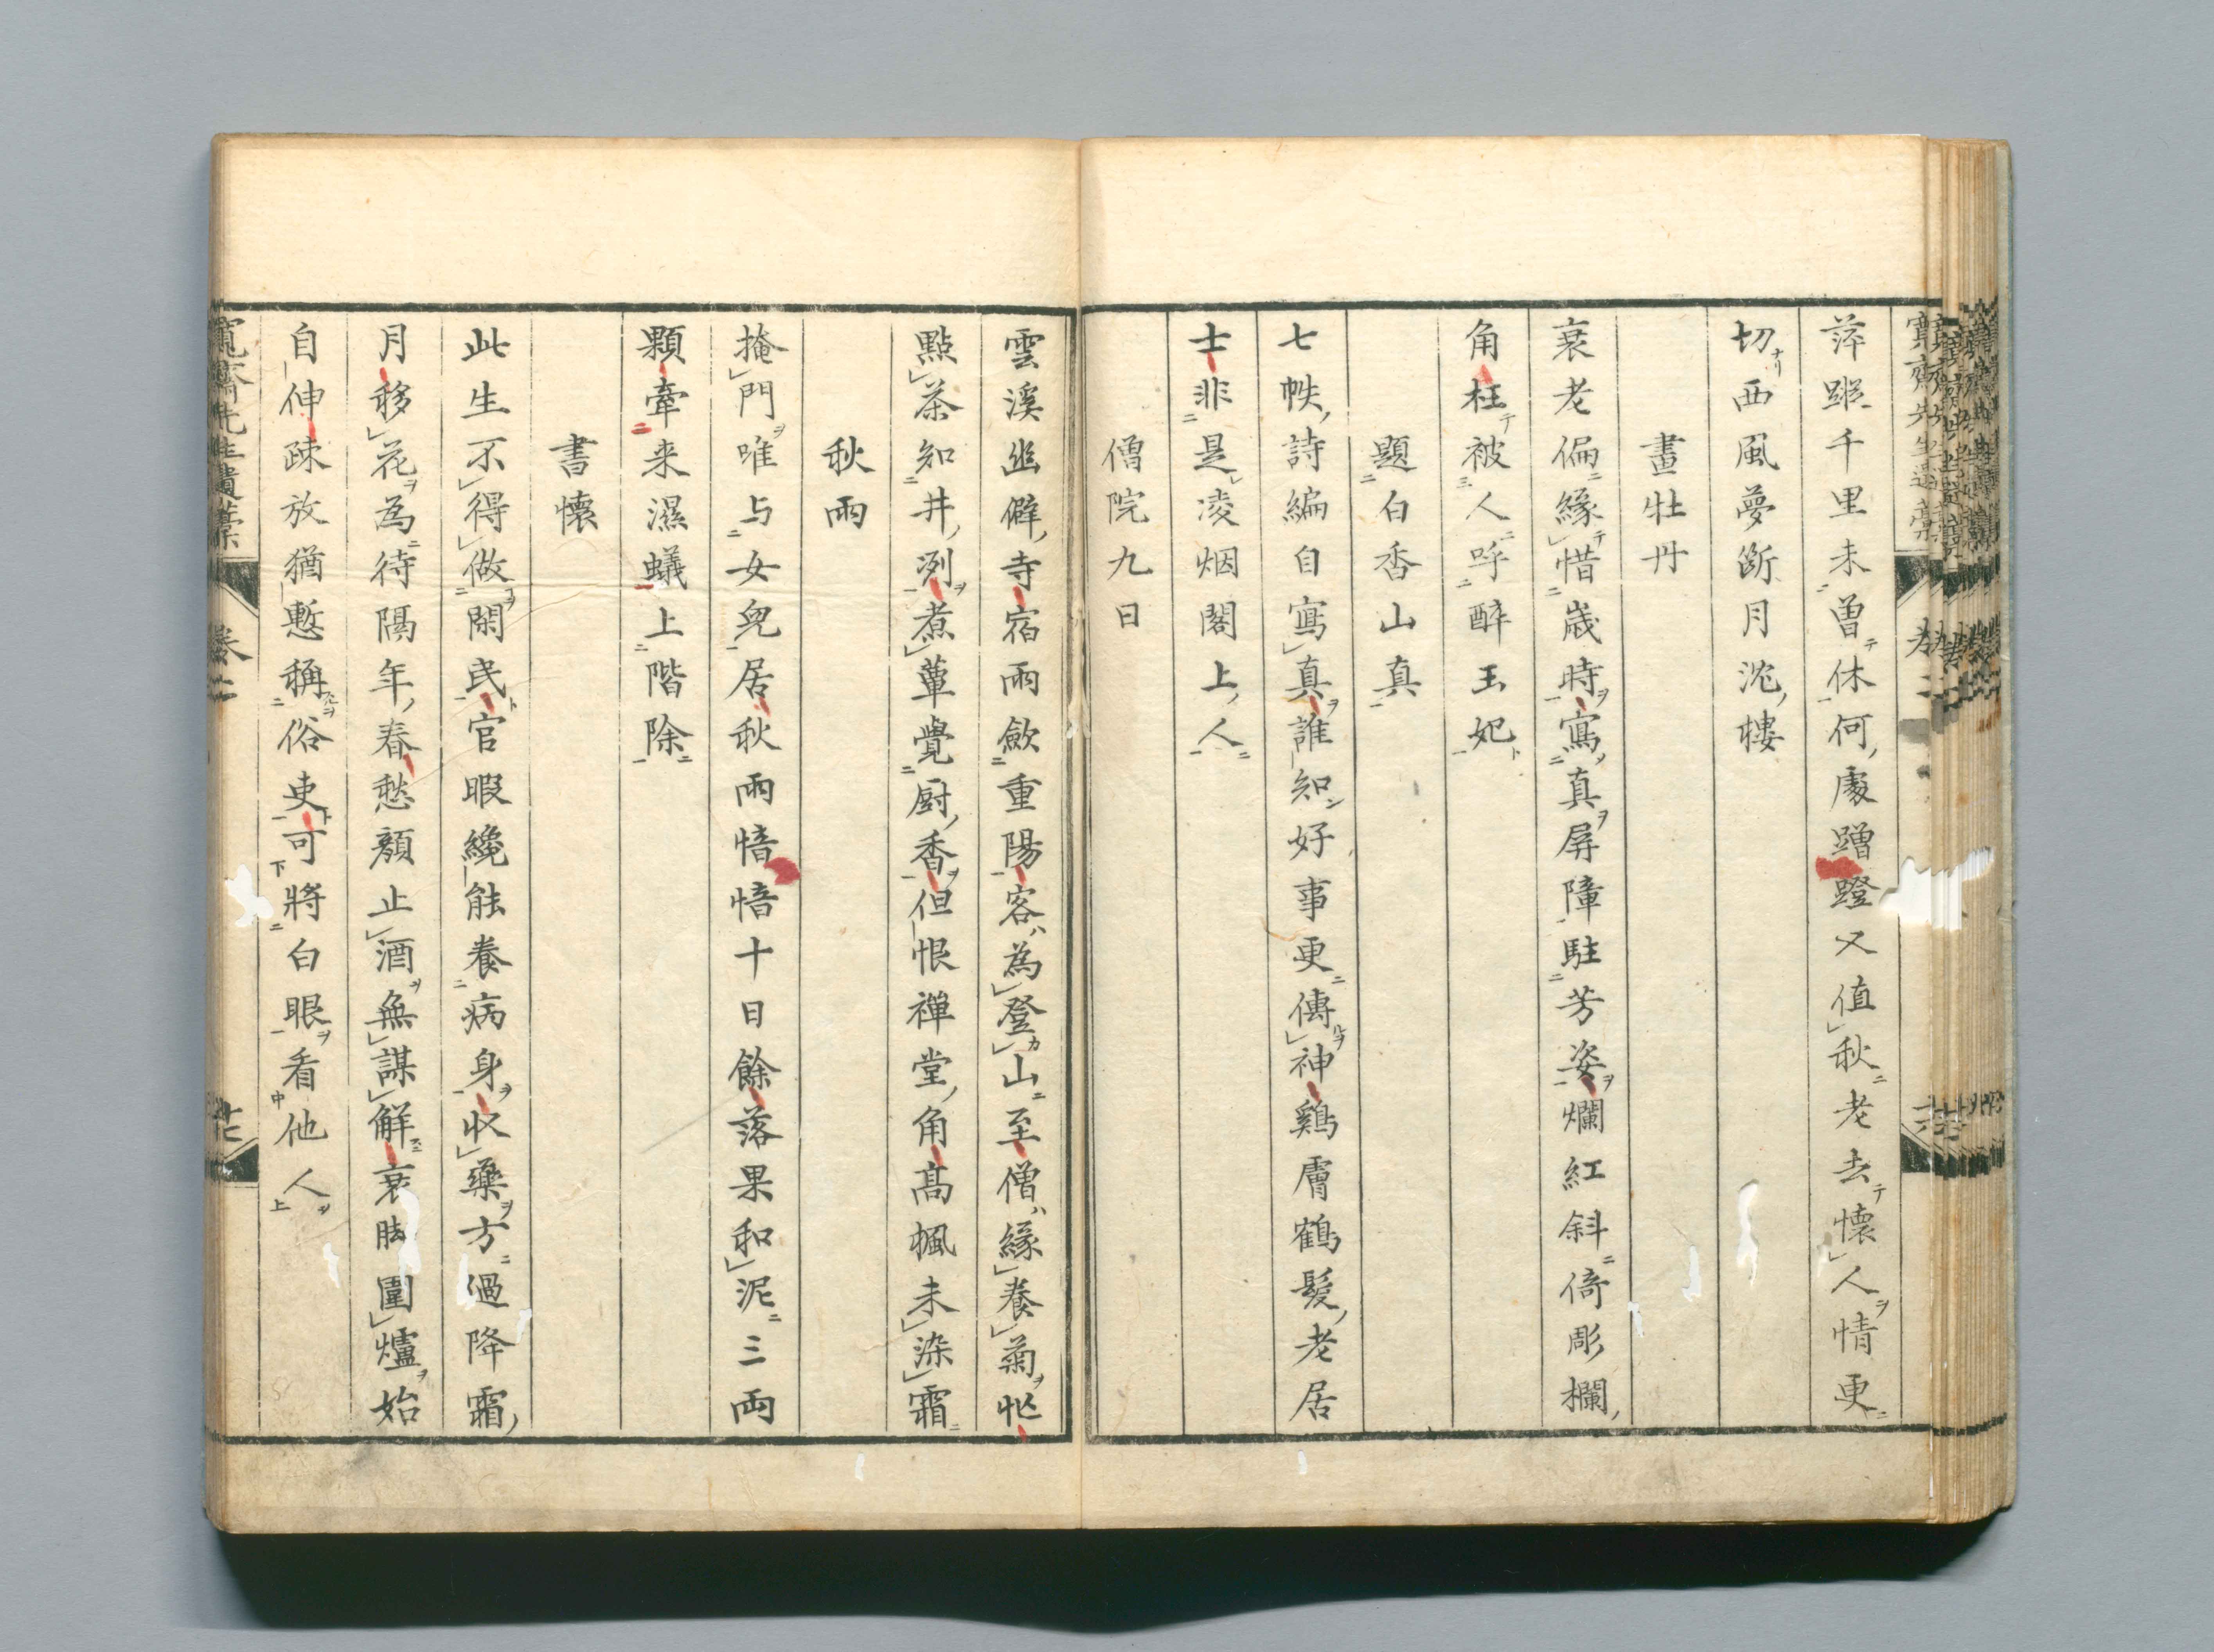 萍蹤千里未曽休何處蹭蹬又值秋老去懐人情更
切西風夢斷月沈樓
畫牡丹
衰老偏緣惜歳時寫真屏障駐芳姿爛紅斜倚彫欄
角枉被人呼醉玉妃
題白香山真
七帙詩編自寫真誰知好事更傳神鷄膚鶴髮老居
士非是凌烟閣上人
僧院九日
雲溪幽僻寺宿雨歛重陽客為登山至僧緣養菊忙
點茶知井洌煮蕈覺厨香但恨禪堂角髙楓未染霜
秋雨
掩門唯与女兒居秋雨愔愔十日餘落果和泥三両
顆牽来濕蟻上階除
書懷
此生不得做閑民官暇纔能養病身收藥方過降霜
月移花為待隔年春愁顔止酒無謀觧衰脚圍爐始
自伸疎放猶慙稱俗吏可將白眼看他人
寛齋先生遺稾
卷二
十七